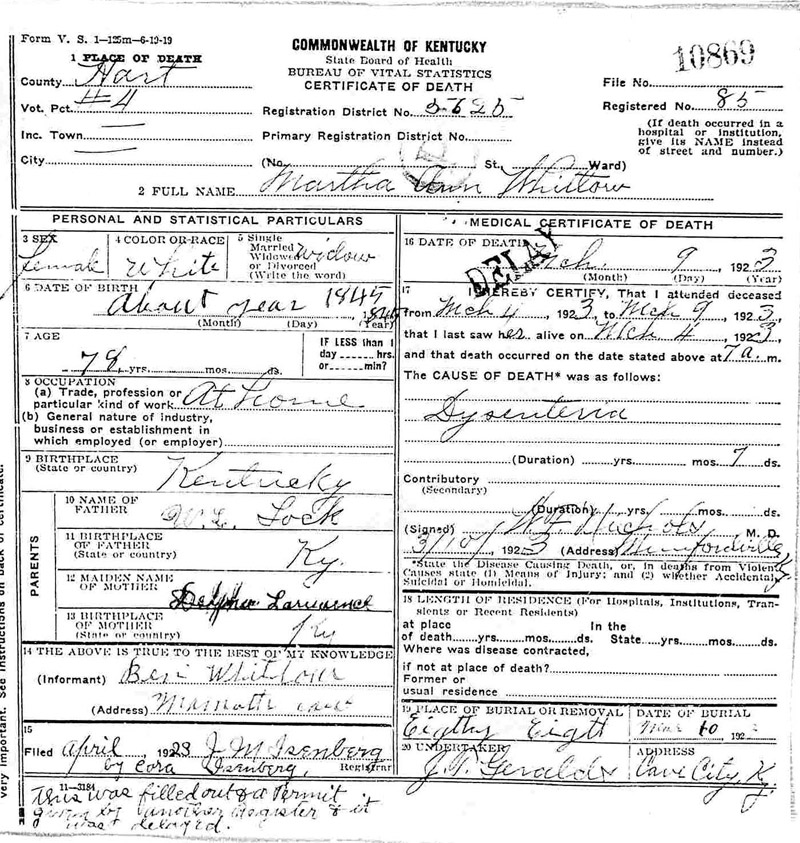 Form V. S. 1—125m—6-19-19
COMMONWEALTH OF KENTUCKY
State Board of Health
BUREAU OF VITAL STATISTICS
CERTIFICATE OF DEATH
10869
1 PLACE OF DEATH
County Hart
File No.
Vot. Pct. #4
Registration District No. 5625
Registered No. 85
Inc. Town
Primary Registration District No.
(If death occurred in a hospital or institution, give its NAME instead of street and number.)
City
(No. St., Ward)
2 FULL NAME Martha Ann Whitlow
PERSONAL AND STATISTICAL PARTICULARS
3 SEX Female
4 COLOR OR RACE White
5 Single Married Widowed or Divorced (Write the word) Widow
6 DATE OF BIRTH About year 1845 1845
(Month) (Day) (Year)
7 AGE
78 yrs. mos. ds.
IF LESS than 1 day hrs. or min?
8 OCCUPATION
(a) Trade, profession or particular kind of work At home
(b) General nature of industry, business or establishment in which employed (or employer)
9 BIRTHPLACE (State or country) Kentucky
PARENTS
10 NAME OF FATHER W. L. Lock
11 BIRTHPLACE OF FATHER (State or country) Ky.
12 MAIDEN NAME OF MOTHER Delpha Larwrence
13 BIRTHPLACE OF MOTHER (State or country) Ky
14 THE ABOVE IS TRUE TO THE BEST OF MY KNOWLEDGE
(Informant) Ben Whitlow
(Address) Mamoth cave
15
Filed April 1923 J M Isenberg
by Cora Isenberg, Registrar
11—3184
This was filled out & a Permit
given by another Register & it
was delayed.
MEDICAL CERTIFICATE OF DEATH
DELAY
16 DATE OF DEATH Mch. 9 1923
(Month) (Day) (Year)
17 I HEREBY CERTIFY, That I attended deceased
from Mch 4, 1923, to Mch 9, 1923,
that I last saw her alive on Mch 4, 1923,
and that death occurred on the date stated above at 7 a. m.
The CAUSE OF DEATH* was as follows:
Dysenteria
(Duration) yrs. mos. 7 ds.
Contributory
(Secondary)
(Duration) yrs. mos. ds.
(Signed) Nichols, M. D.
3/10/ 1923 (Address) Munfordville Ky
*State the Disease Causing Death, or, in deaths from Violent Causes state (1) Means of Injury; and (2) whether Accidental, Suicidal or Homicidal.
18 LENGTH OF RESIDENCE (For Hospitals, Institutions, Transients or Recent Residents)
at place of death yrs. mos. ds. In the State yrs. mos. ds.
Where was disease contracted,
if not at place of death?
Former or usual residence
19 PLACE OF BURIAL OR REMOVAL
Eigthy Eigtt
DATE OF BURIAL
Mar 10, 192
20 UNDERTAKER
J. T. Geralds
ADDRESS
Cave City, Ky.
very important. See instructions on back of certificate.